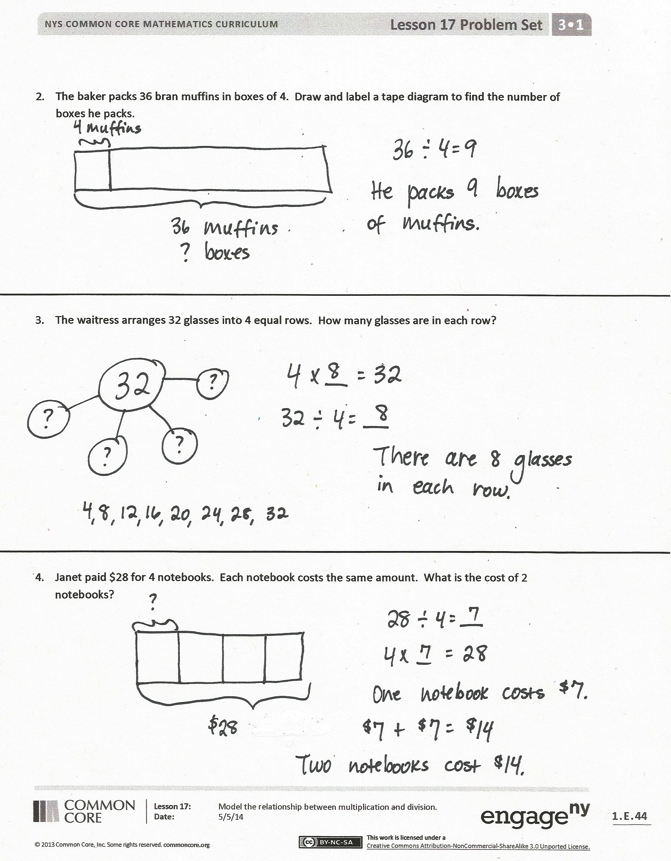 NYS COMMON CORE MATHEMATICS CURRICULUM
Lesson 17 Problem Set 3•1
2. The baker packs 36 bran muffins in boxes of 4. Draw and label a tape diagram to find the number of
boxes he packs.
4 muffins
36 muffins
? boxes
36 ÷ 4 = 9
He packs 9 boxes
of muffins.
3. The waitress arranges 32 glasses into 4 equal rows. How many glasses are in each row?
32
?
?
?
?
4, 8, 12, 16, 20, 24, 28, 32
4 x 8 = 32
32 ÷ 4 = 8
There are 8 glasses
in each row.
4. Janet paid $28 for 4 notebooks. Each notebook costs the same amount. What is the cost of 2
notebooks?
?
$28
28 ÷ 4 = 7
4 x 7 = 28
One notebook costs $7.
$7 + $7 = $14
Two notebooks cost $14.
COMMON
CORE
Lesson 17: Model the relationship between multiplication and division.
Date: 5/5/14
engageny
1.E.44
© 2013 Common Core, Inc. Some rights reserved. commoncore.org
cc BY-NC-SA
This work is licensed under a
Creative Commons Attribution-NonCommercial-ShareAlike 3.0 Unported License.